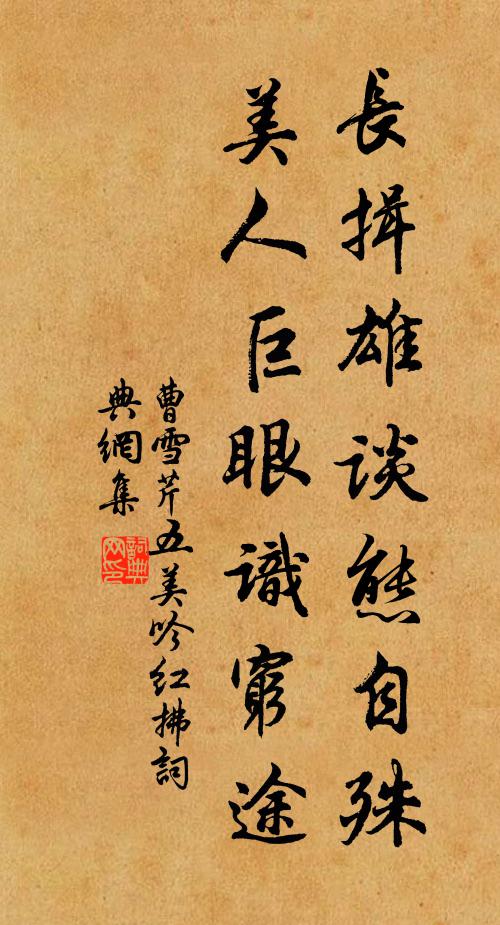 長揖雄談態自殊
美人巨眼識窮途
曹雪芹五美吟紅拂詞
典網集
詞典網印